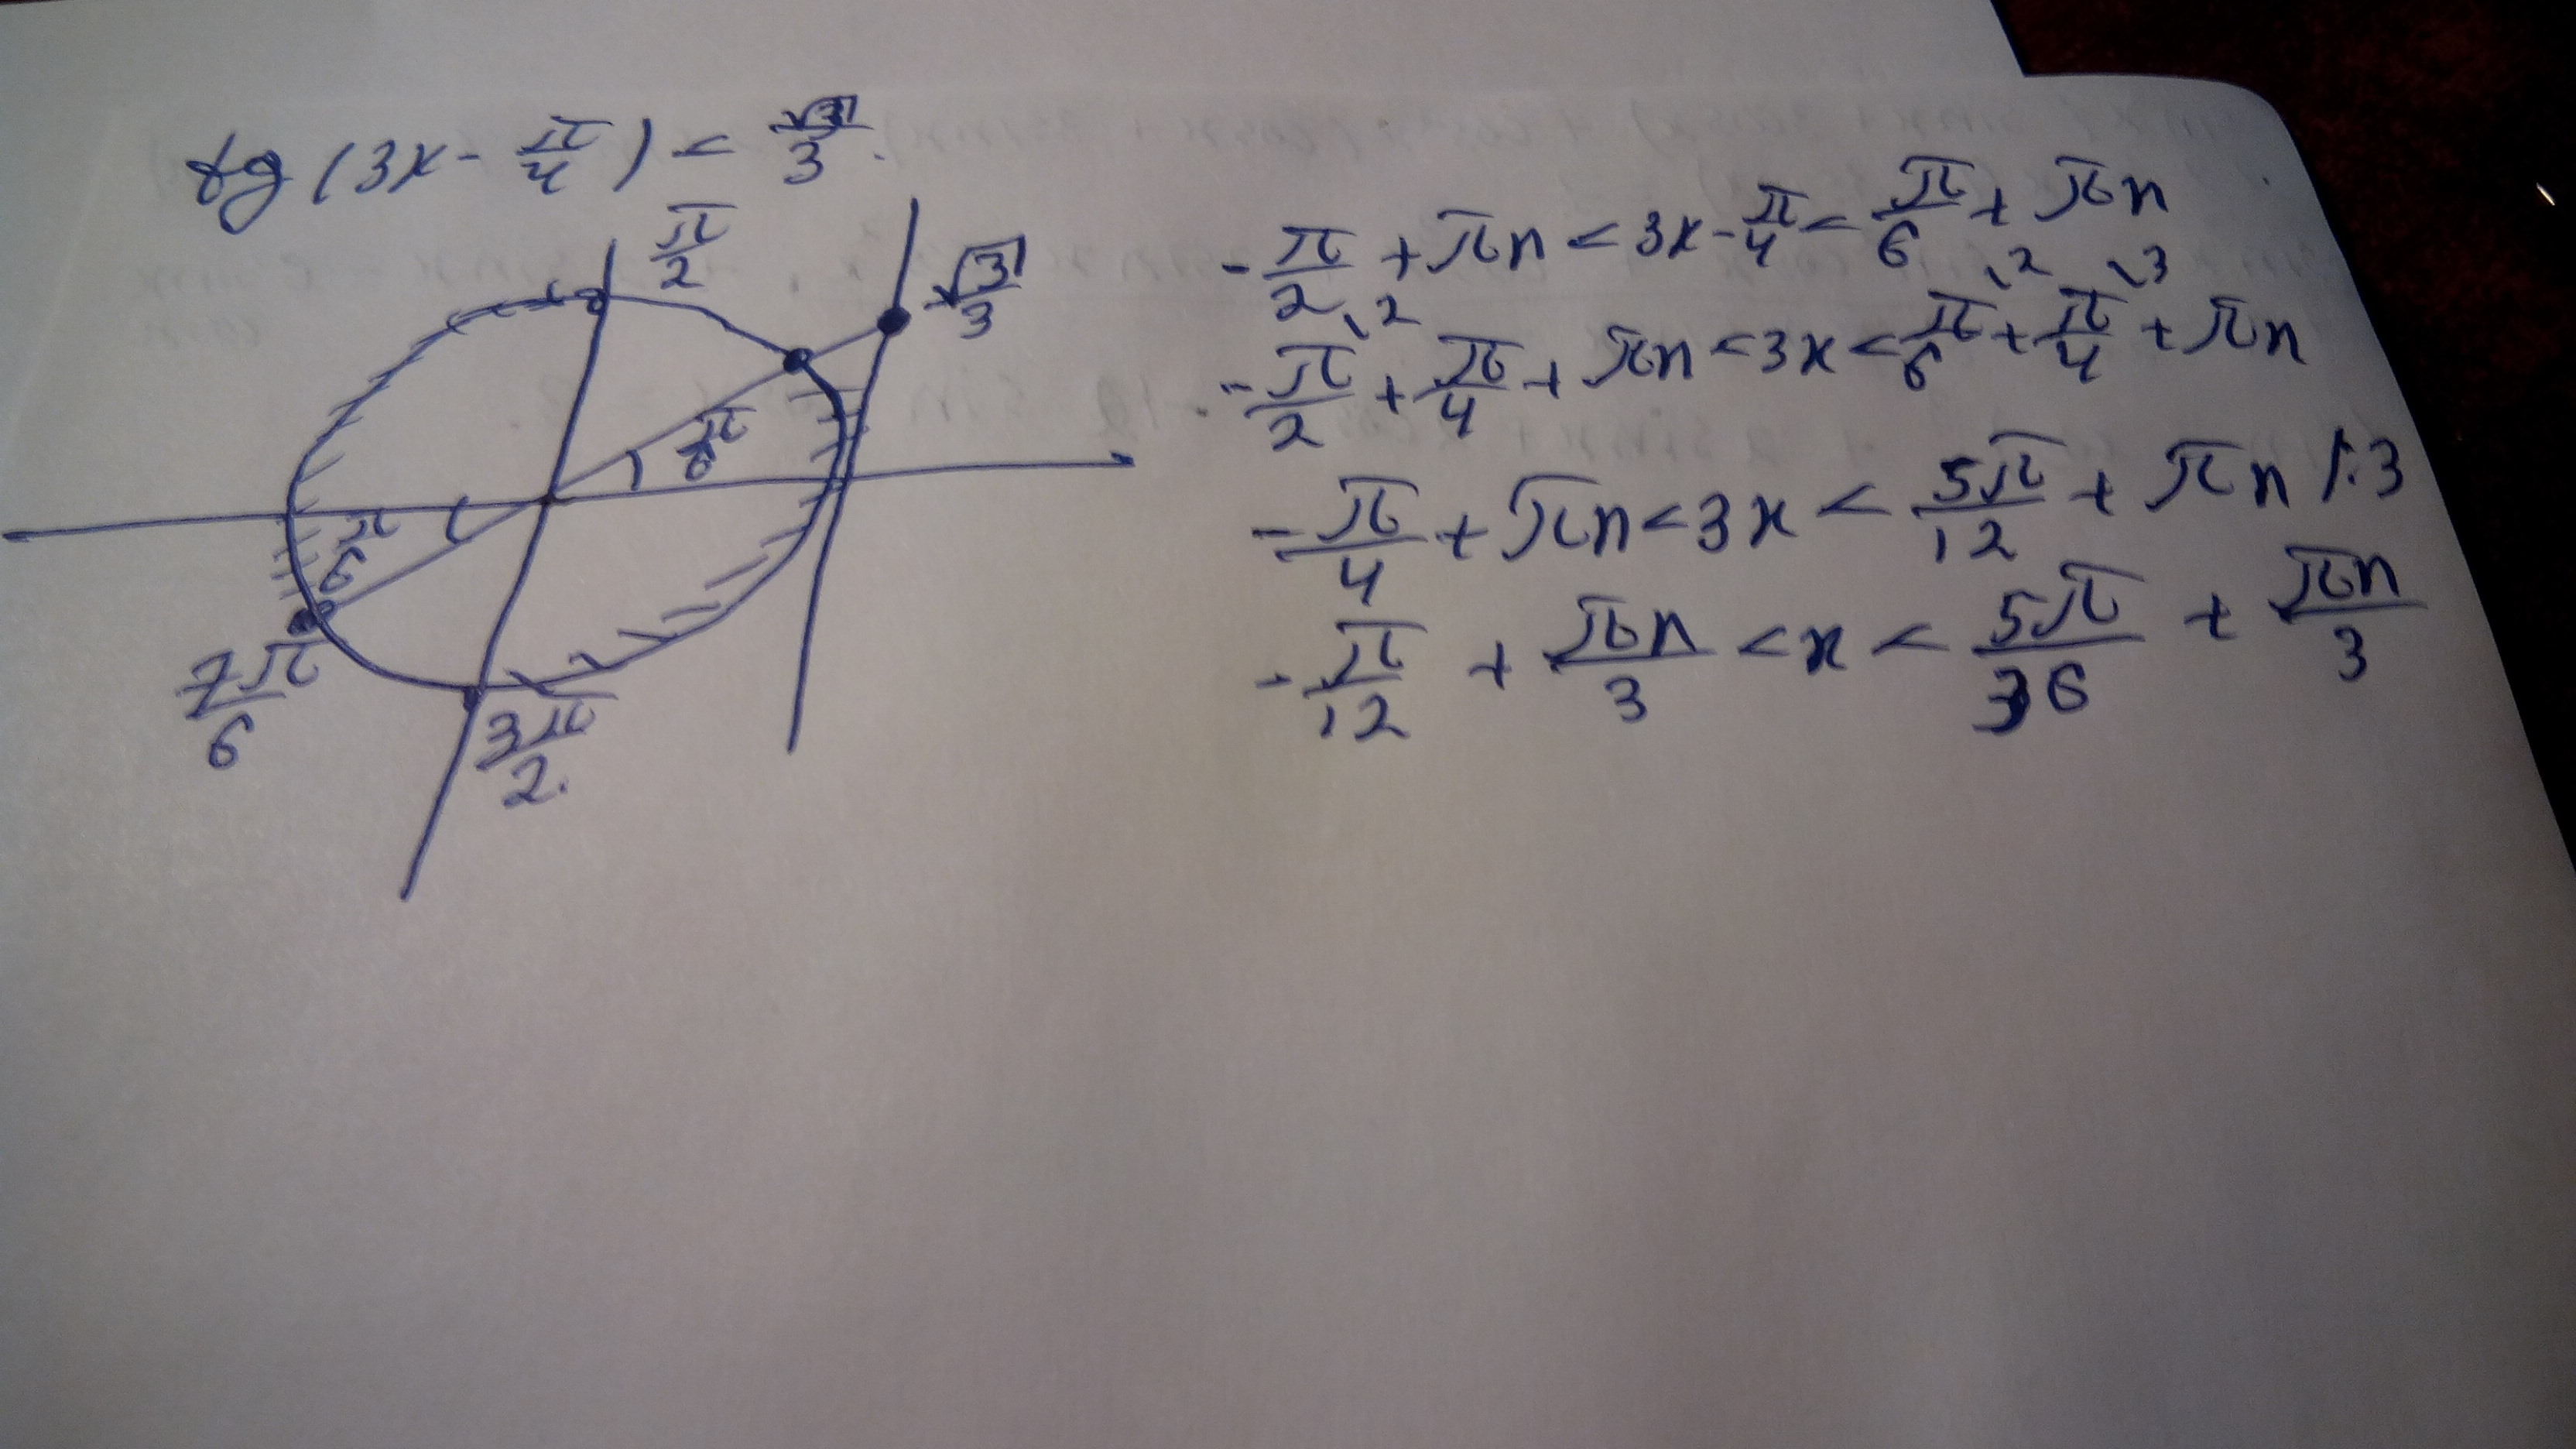 tg(3x - π/4) < √3/3.
π/2
√3/3
π/6
π/6
7π/6
3π/2.
-π/2 + πn < 3x - π/4 < π/6 + πn
-π/2 \2 + π/4 + πn < 3x < π/6 \2 + π/4 \3 + πn
-π/4 + πn < 3x < 5π/12 + πn /:3
-π/12 + πn/3 < x < 5π/36 + πn/3